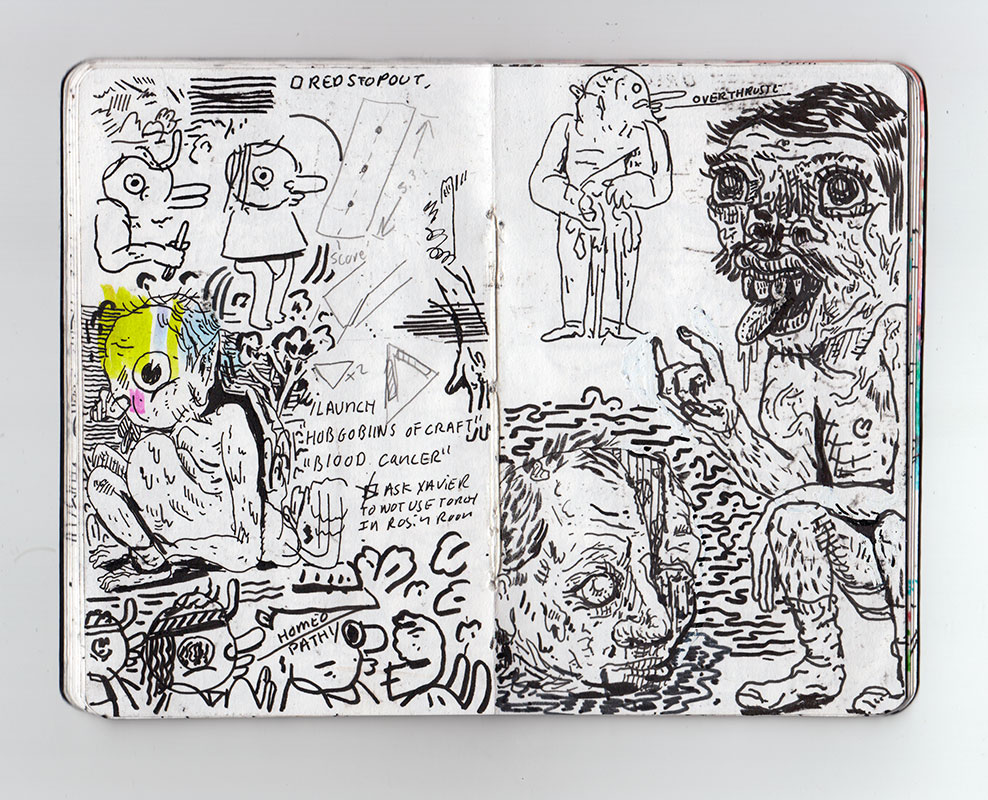 RED STOP OUT,
5.31
Score
x2
LAUNCH
"HOBGOBLINS OF CRAFT"
"BLOOD CANCER"
ASK XAVIER
TO NOT USE TORCH
IN ROSIN ROOM
HOMEO
PATHY
OVERTHRUSTL